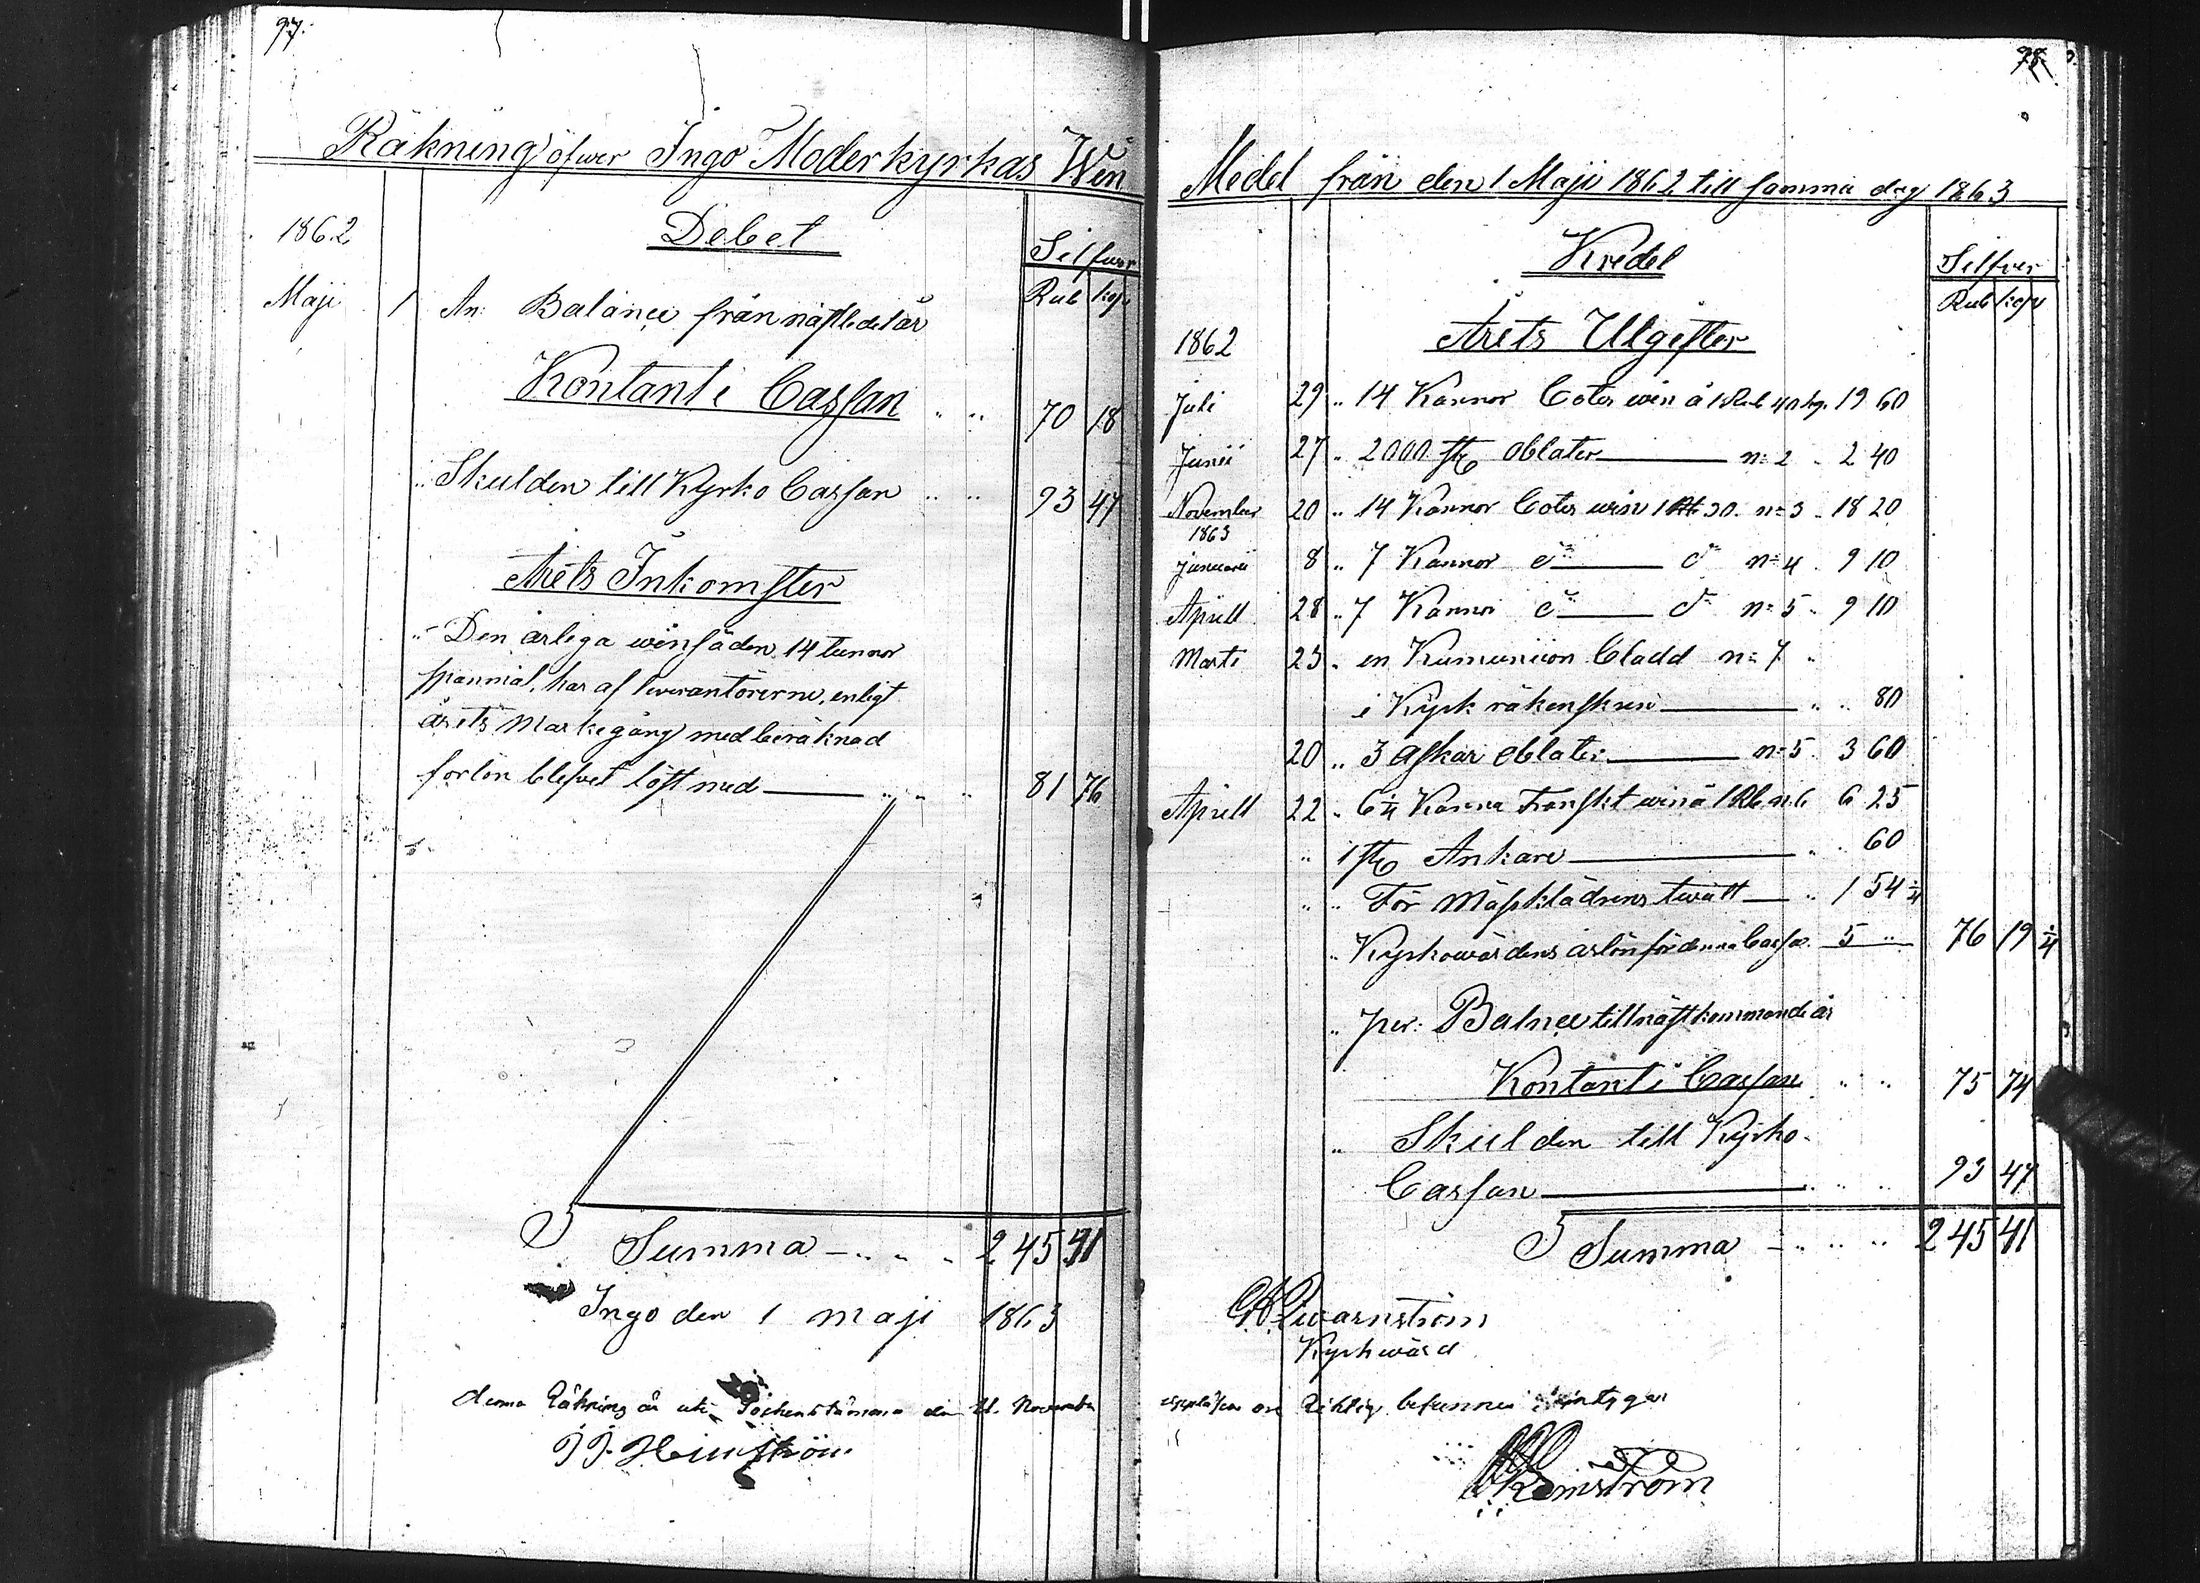 97.
Räkning öfwer Ingo Moderkyrkas Win
1862
Debet
Silfwer
Rub kop
Maji 1 An: Balance från nästledet år
Kontant i Cassan " " 70 18
" Skulden till Kyrko Cassan " " 93 47
Årets Inkomster
" Den årliga winsäden 14 tunnor
spanmål, har af leverantörerne, enligt
årets Markegång med beräknad
forlön blefvet löst med " " " 81 76
Summa " " " 245 41
Ingo den 1 maji 1863
denna Räkning är uti Sockenstämma den November
98.
Medel från den 1 Maji 1862 till samma dag 1863
Kredet
Silfver
Rub kop
1862
Årets Utgifter
Juli 29 " 14 Kannor Coter win à 1 Rub 40 kop. 19 60
Junii 27 " 2000 st oblater n:2 " 2 40
November 20 " 14 Kannor Coter win 1 Rb 30. n:3 " 18 20
1863
januarii 8 " 7 Kannor d:o d:o n:4 . 9 10
Aprill 28 " 7 Kannor d:o d:o n:5 " 9 10
Marti 23 " en Kumunion Cladd n:7 "
i Kyrk räkenskren " " 80
20 " 3 askar oblater n:5 . 3 60
Aprill 22 " 6 1/4 Kanna Franskt win à 1 Rb n:6 6 25
" 1 st Ankare " " 60
" " För Mässklädrens twätt " 1 54 1/4
" Kyrkowärdens årlön för denna Cassa 5 " 76 19 1/4
" per: Balnce till nästkommande år
Kontant i Cassan " " 75 74
" Skulden till Kyrko-
Cassan " " " 93 47
Summa " " " 245 41
Qwarnström
Kyrkwärd
uppläsen och Riktig befunnen intygar